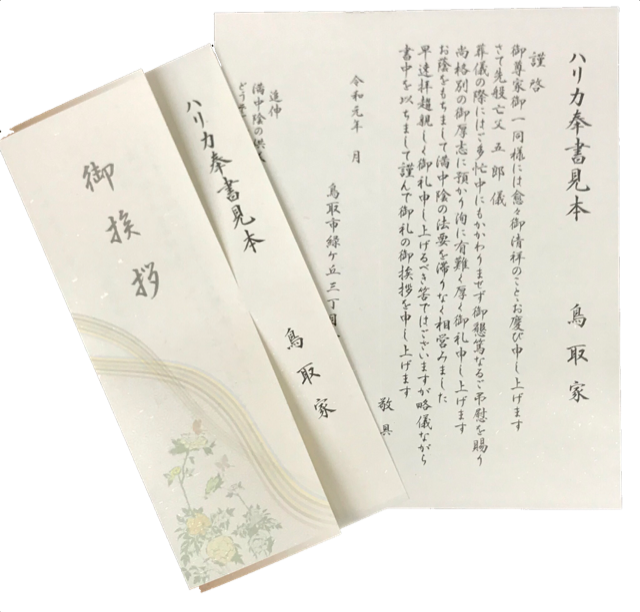 御挨拶
ハリカ奉書見本
鳥取家
ハリカ奉書見本 鳥取家
謹啓
御尊家御一同様には愈々御清祥のことゝお慶び申し上げます
さて先般亡父五郎儀
葬儀の際にはご多忙中にもかかわりませず御懇篤なるご弔慰を賜り
尚格別の御厚志に預かり洵に有難く厚く御礼申し上げます
お蔭をもちまして満中陰の法要を滞りなく相営みました
早速拝趨親しく御礼申し上げるべき筈ではございますが略儀ながら
書中を以ちまして謹んで御礼の御挨拶を申し上げます
敬具
令和元年 月
鳥取市緑ケ丘三丁目
追伸
満中陰の
どう